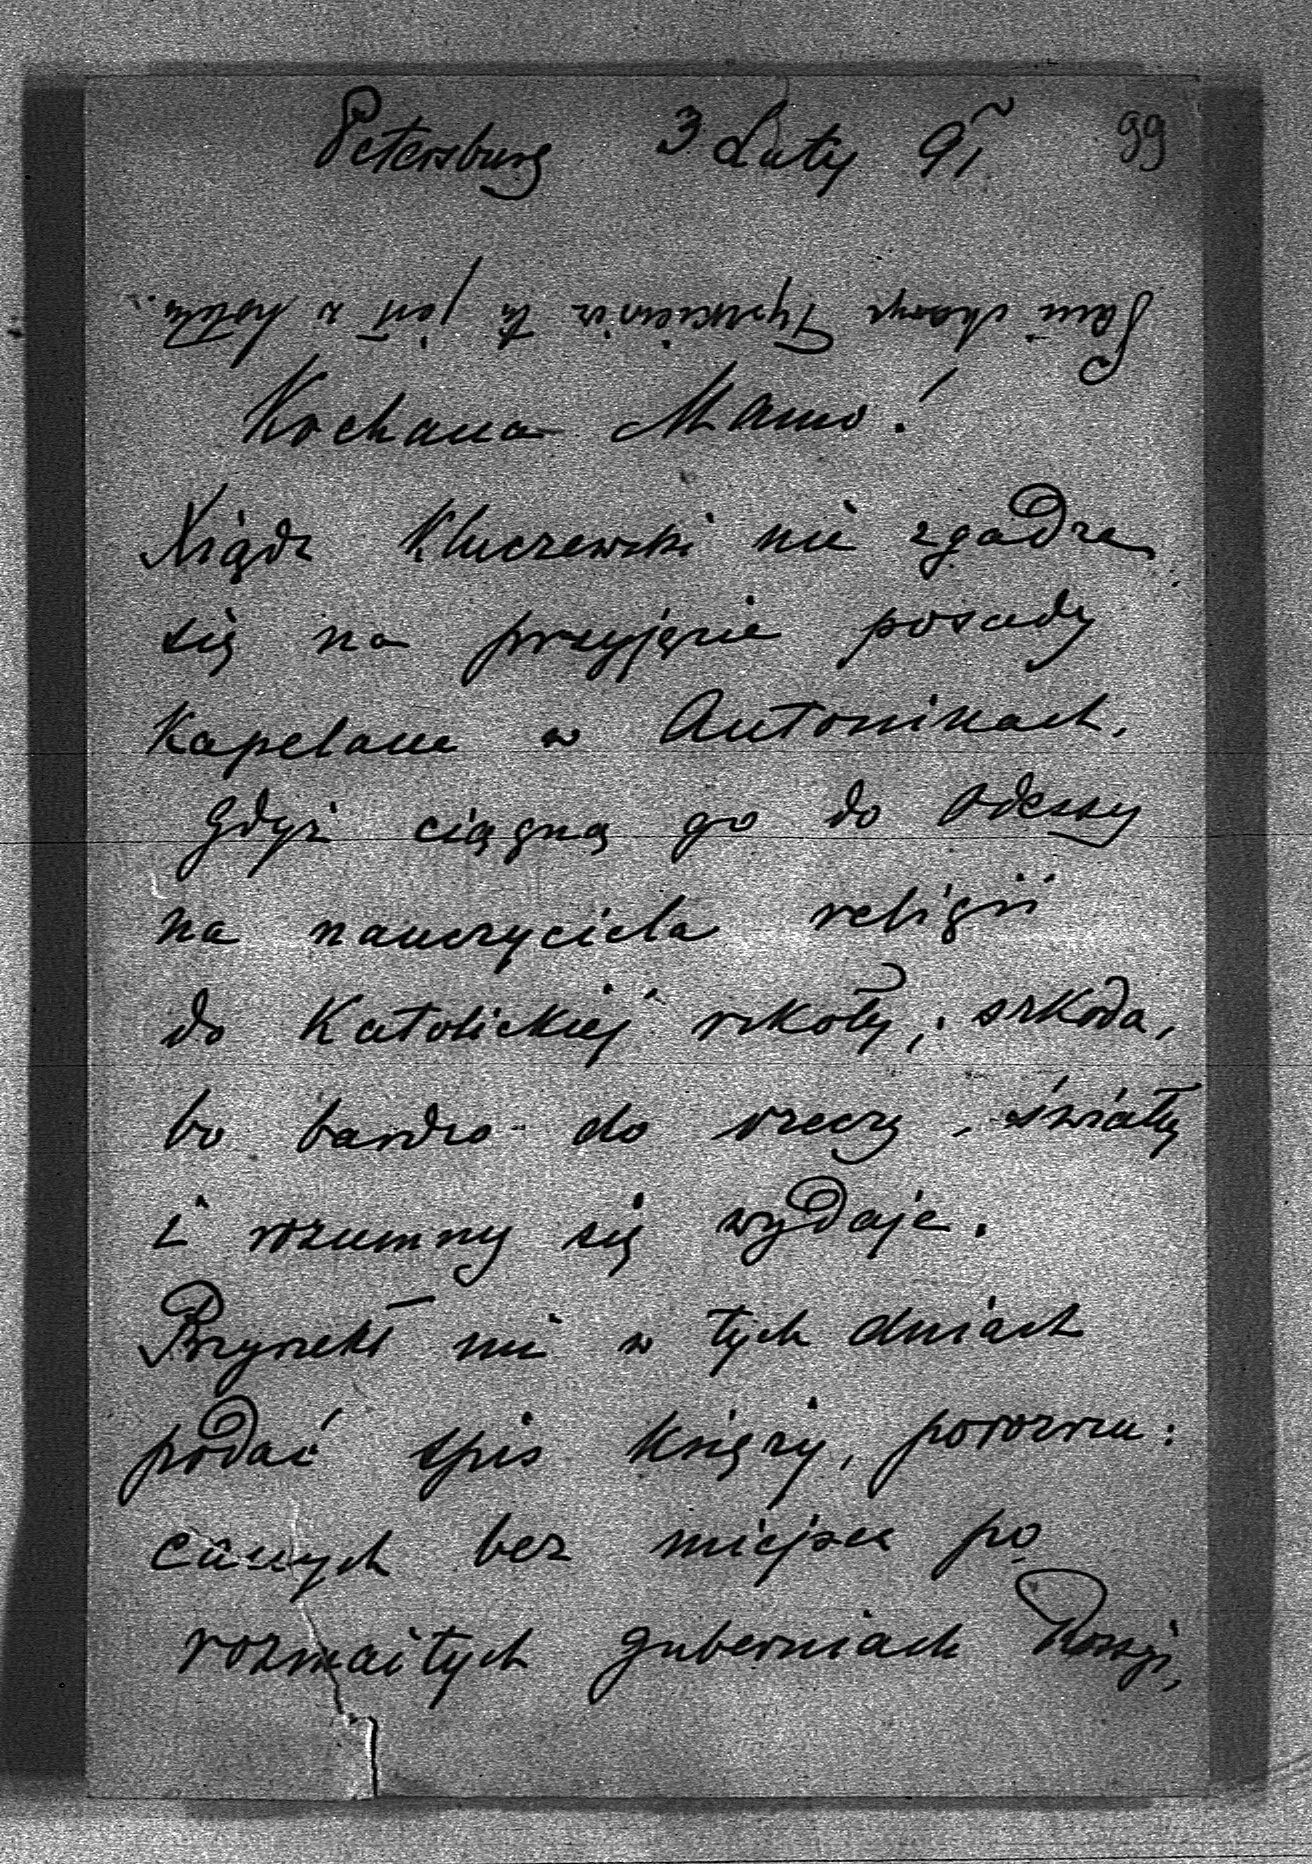 Petersburg 3 Luty 91 99
Kochana Mamo!
Xiądz Kluczewski nie zgadza
się na przyjęcie posady
Kapelana w Antoninach,
gdyż ciągną go do Odessy
na nauczyciela religii
do Katolickiéj szkoły; szkoda,
bo bardzo do rzeczy, światły
i rozumny się wydaje.
Przyrzekł mi w tych dniach
podać spis księży, porozrzu:
canych bez miejsca po
rozmaitych guberniach Rossji,
Pani Tyszkiewicz tu jest z